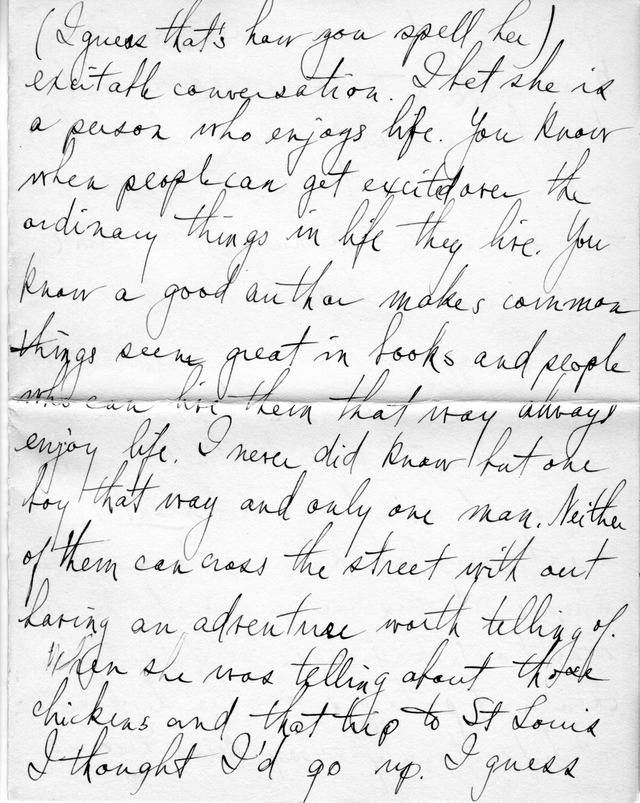 (I guess that's how you spell her)
excitable conversation. I bet she is
a person who enjoys life. You know
when people can get excited over the
ordinary things in life they live. You
know a good author makes common
things seem great in books and people
who can live them that way always
enjoy life. I never did know but one
boy that way and only one man. Neither
of them can cross the street with out
having an adventure worth telling of.
When she was telling about those
chickens and that trip to St Louis
I thought I'd go up. I guess